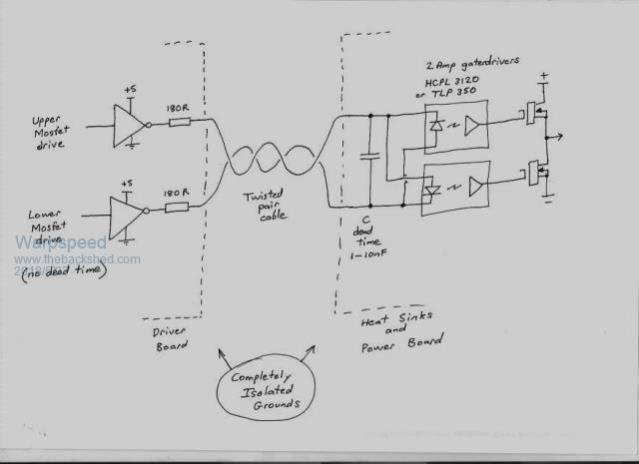 2 Amp gatedrivers
HCPL 3120
or TLP 350
+
+5
180R
Upper
Mosfet
drive
+5
180R
Lower
Mosfet
drive
(no dead time)
Warpspeed
www.thebackshed.com
Twisted
pair
cable
C
dead
time
1-10nF
Driver
Board
Heat Sinks
and
Power Board
Completely
Isolated
Grounds